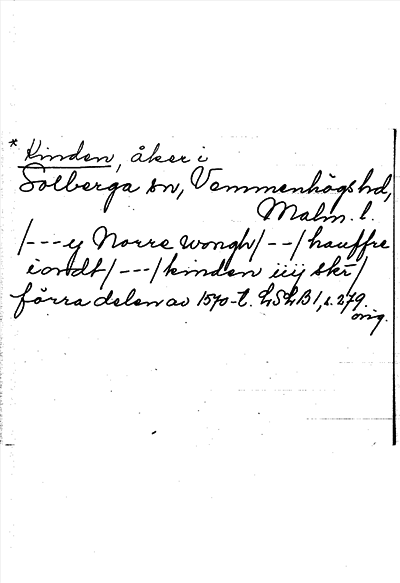 * Kinden, åker i
Solberga sn, Vemmenhögs hd,
Malm. l.
/---y Norre wongh/--/hauffre
iordt/---/kinden iiij skr/
förra delen av 1570-t. LSLB1, s. 279.
orig.